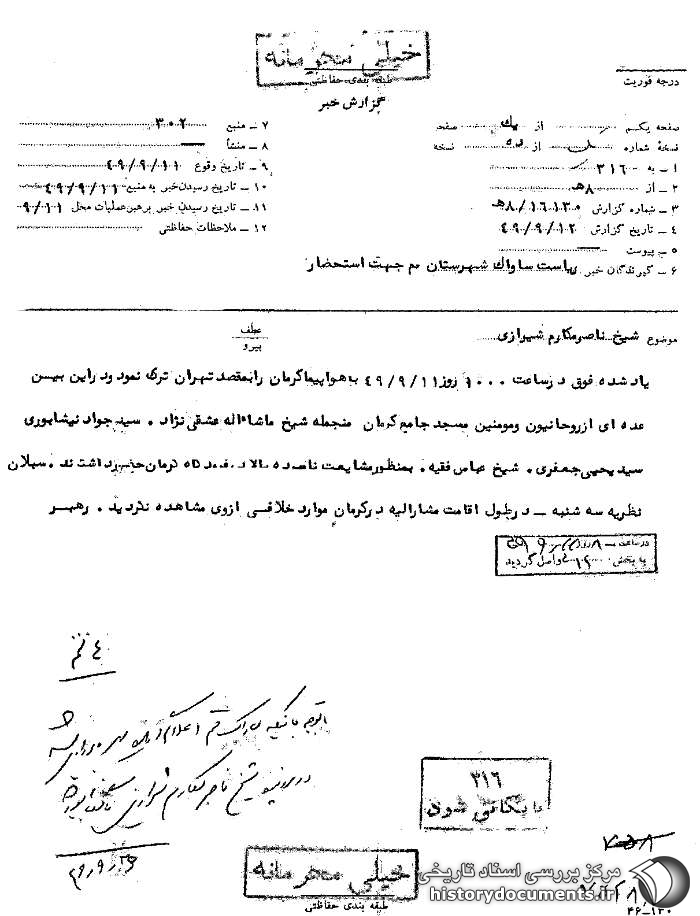 خیلی محرمانه
طبقه بندی حفاظتی
گزارش خبر
درجه فوریت
صفحه یکم از یک صفحه
نسخهٔ شماره از ده نسخه
۱ ـ به ۳۱۶
۲ ـ از ۸هـ
۳ ـ شماره گزارش ۸/۱۶۱۳۰هـ
۴ ـ تاریخ گزارش ۴۹/۹/۱۲
۵ ـ پیوست
۶ ـ گیرندگان خبر ریاست ساواک شهرستان قم جهت استحضار
۷ ـ منبع ۳۰۲
۸ ـ منشأ
۹ ـ تاریخ وقوع ۴۹/۹/۱۱
۱۰ ـ تاریخ رسیدن خبر به منبع ۴۹/۹/۱۱
۱۱ ـ تاریخ رسیدن خبر برهبر عملیات محل ۹/۱۱
۱۲ ـ ملاحظات حفاظتی
موضوع شیخ ناصر مکارم شیرازی
عطف
پیرو
یاد شده فوق در ساعت ۱۰۰۰ روز ۴۹/۹/۱۱ با هواپیما کرمان را بمقصد تهران ترک نمود و در این بین
عده ای از روحانیون و مومنین مسجد جامع کرمان منجمله شیخ ماشااله عشقی نژاد . سید جواد نیشابوری
سید یحیی جعفری . شیخ عباس فقیه . بمنظور مشایعت نامبرده بالا در فرودگاه کرمان حضور داشتند . سبلان
نظریه سه شنبه ـ در طول اقامت مشارالیه در کرمان موارد خلافی از وی مشاهده نگردید . رهبر
در ساعت ۸ روز
به بخش ۳۱۲ واصل گردید
۳۱۶
بایگانی شود
خیلی محرمانه
طبقه بندی حفاظتی
مرکز بررسی اسناد تاریخی
historydocuments.ir
۴۶-۱۳۰